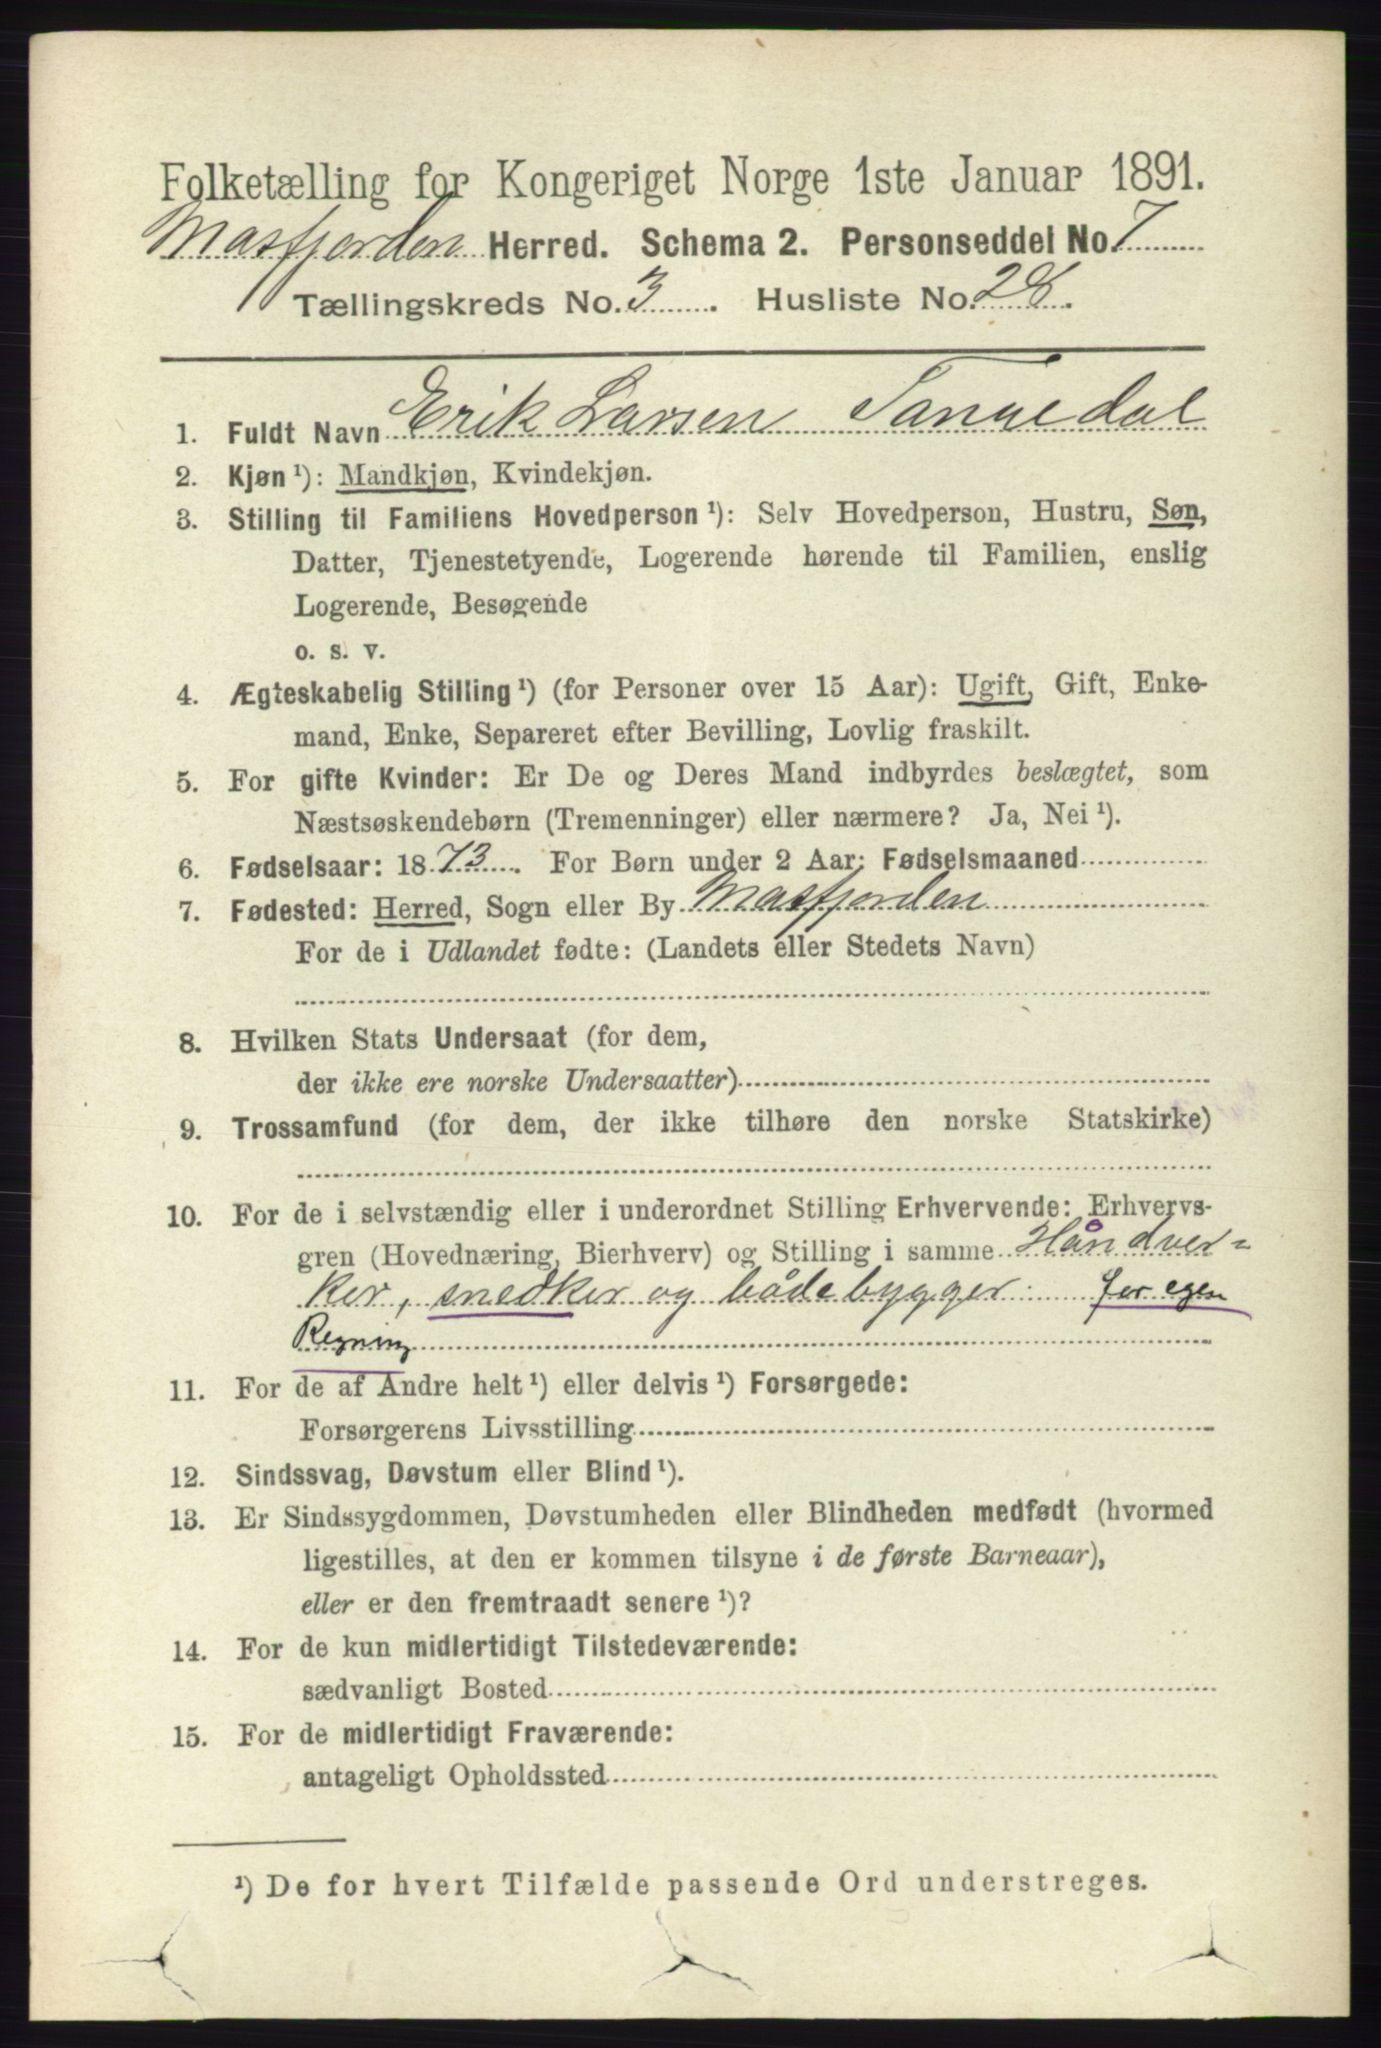 Folketælling for Kongeriget Norge 1ste Januar 1891.
Masfjorden Herred. Schema 2. Personseddel No. 7
Tællingskreds No. 3. Husliste No. 28.
1. Fuldt Navn Erik Larsen Tangedal
2. Kjøn ¹): Mandkjøn, Kvindekjøn.
3. Stilling til Familiens Hovedperson ¹): Selv Hovedperson, Hustru, Søn,
Datter, Tjenestetyende, Logerende hørende til Familien, enslig
Logerende, Besøgende
o. s. v.
4. Ægteskabelig Stilling ¹) (for Personer over 15 Aar): Ugift, Gift, Enke-
mand, Enke, Separeret efter Bevilling, Lovlig fraskilt.
5. For gifte Kvinder: Er De og Deres Mand indbyrdes beslægtet, som
Næstsøskendebørn (Tremenninger) eller nærmere? Ja, Nei ¹).
6. Fødselsaar: 1873. For Børn under 2 Aar: Fødselsmaaned
7. Fødested: Herred, Sogn eller By Masfjorden
For de i Udlandet fødte: (Landets eller Stedets Navn)
8. Hvilken Stats Undersaat (for dem,
der ikke ere norske Undersaatter)
9. Trossamfund (for dem, der ikke tilhøre den norske Statskirke)
10. For de i selvstændig eller i underordnet Stilling Erhvervende: Erhvervs-
gren (Hovednæring, Bierhverv) og Stilling i samme Håndver=
ker, snedker og bådebygger. for egen
Regning
11. For de af Andre helt ¹) eller delvis ¹) Forsørgede:
Forsørgerens Livsstilling
12. Sindssvag, Døvstum eller Blind ¹).
13. Er Sindssygdommen, Døvstumheden eller Blindheden medfødt (hvormed
ligestilles, at den er kommen tilsyne i de første Barneaar),
eller er den fremtraadt senere ¹)?
14. For de kun midlertidigt Tilstedeværende:
sædvanligt Bosted
15. For de midlertidigt Fraværende:
antageligt Opholdssted
¹) De for hvert Tilfælde passende Ord understreges.